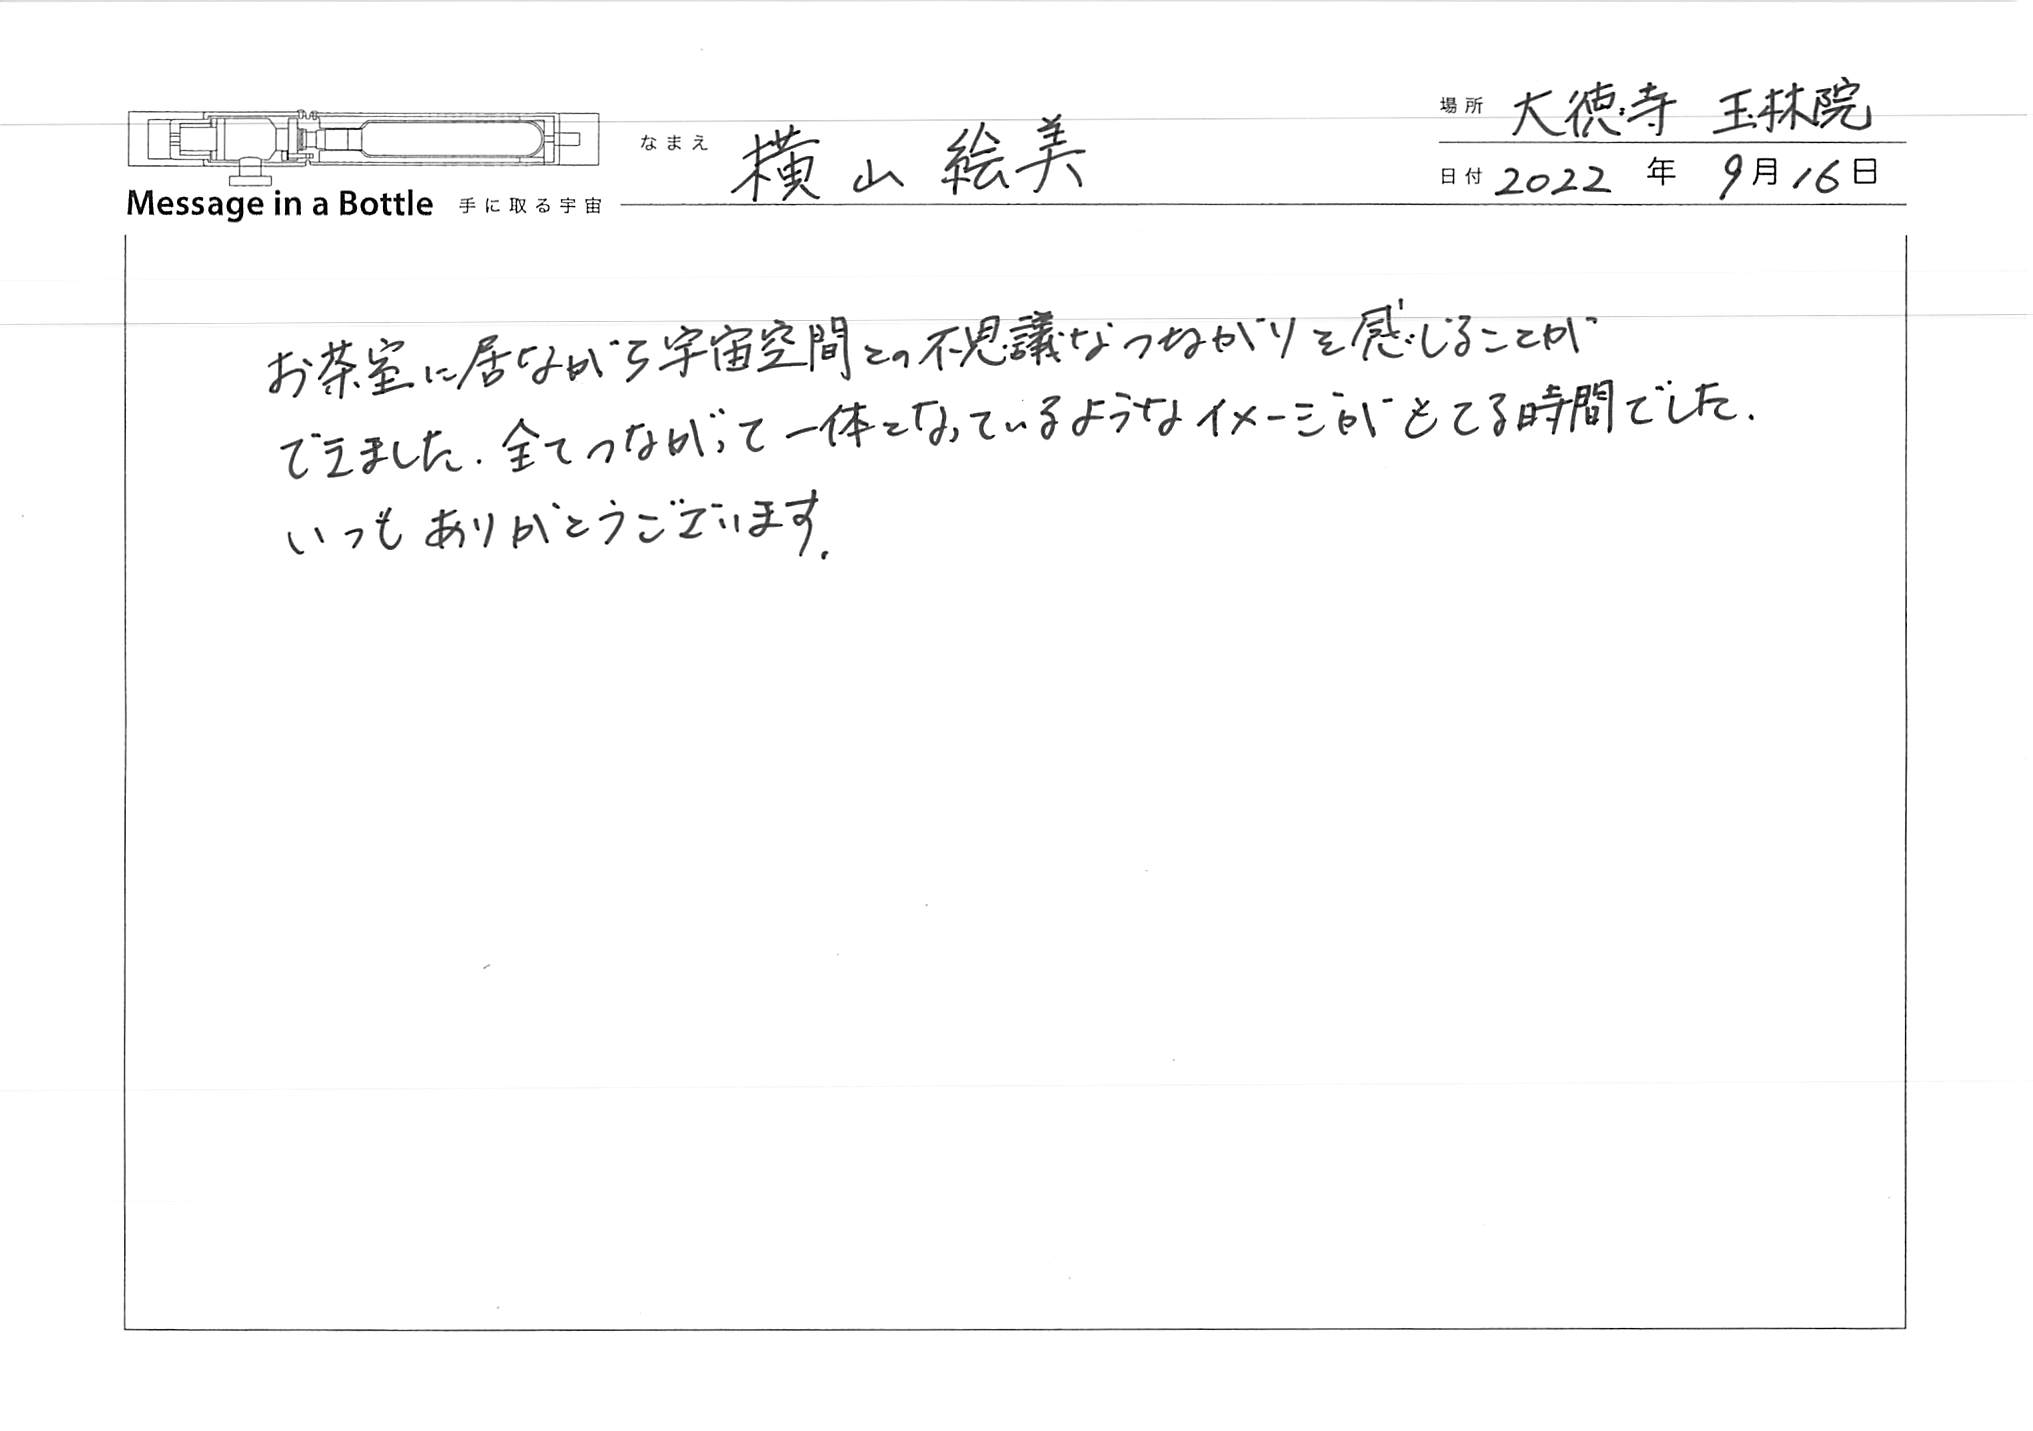 場所 大徳寺 玉林院
なまえ 横山 絵美
日付 2022 年 9月16日
Message in a Bottle 手に取る宇宙
お茶室に居ながら宇宙空間との不思議なつながりを感じることが
できました. 全てつながって一体となっているようなイメージがもてる時間でした.
いつもありがとうございます.